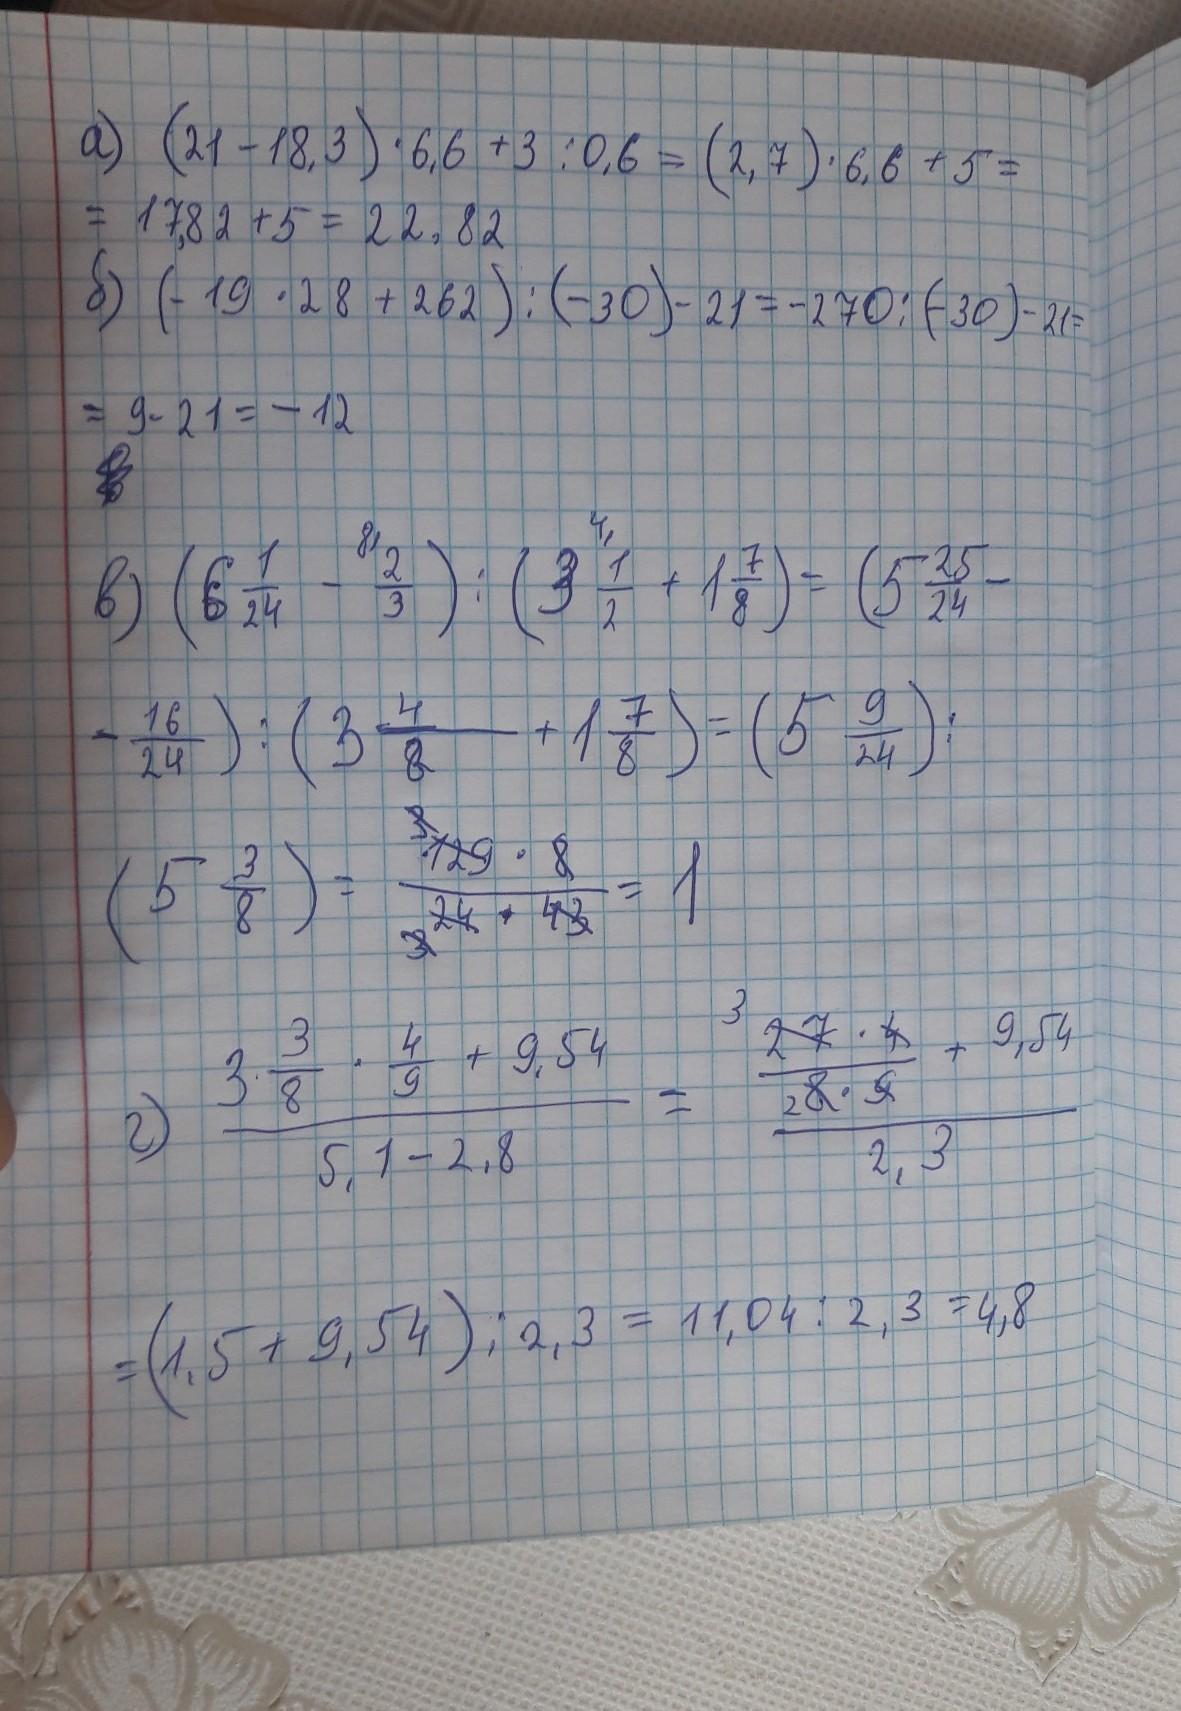 а) (21 - 18,3) · 6,6 + 3 : 0,6 = (2,7) · 6,6 + 5 =
= 17,82 + 5 = 22,82
б) (- 19 · 28 + 262) : (-30) - 21 = -270 : (-30) - 21 =
= 9 - 21 = - 12
в) (6 1/24 - 8) 2/3) : (3 4) 1/2 + 1 7/8) = (5 25/24 -
- 16/24) : (3 4/8 + 1 7/8) = (5 9/24) :
(5 3/8) = 3 129 · 8 / 3 24 · 43 = 1
г) 3 · 3/8 · 4/9 + 9,54 / 5,1 - 2,8 = 3 27 · 4 / 2 8 · 9 + 9,54 / 2,3
= (1,5 + 9,54) : 2,3 = 11,04 : 2,3 = 4,8